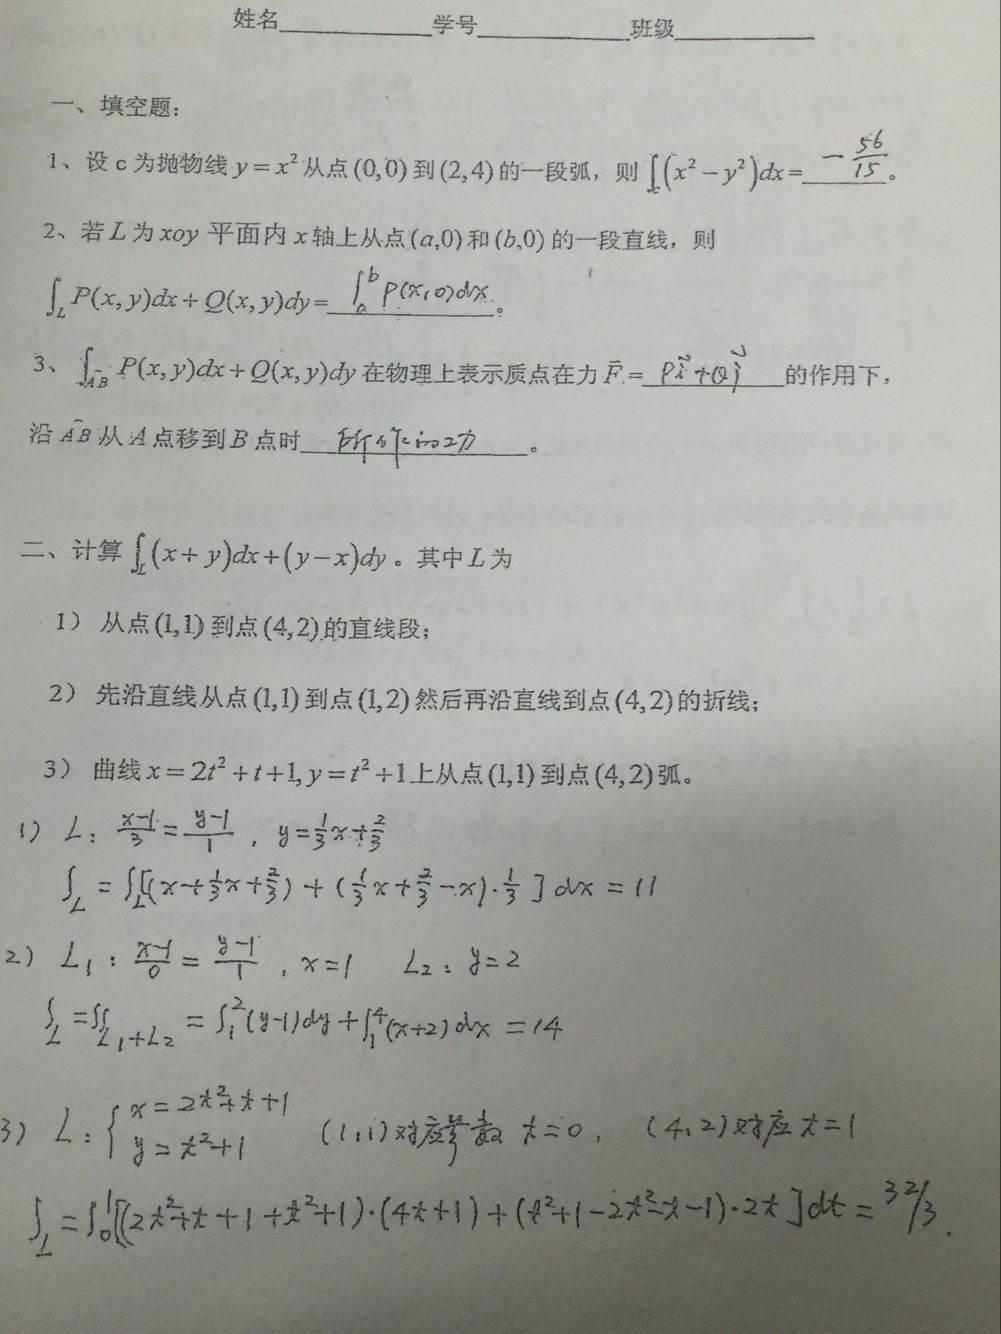 姓名____________学号____________班级____________
一、填空题:
1、设 c 为抛物线 y = x² 从点 (0,0) 到 (2,4) 的一段弧，则 ∫_c (x² − y²)dx = −56/15 。
2、若 L 为 xoy 平面内 x 轴上从点 (a,0) 和 (b,0) 的一段直线，则
∫_L P(x, y)dx + Q(x, y)dy = ∫_a^b P(x,0)dx 。
3、∫_AB P(x, y)dx + Q(x, y)dy 在物理上表示质点在力 F = Pi + Qj 的作用下，
沿 AB 从 A 点移到 B 点时 所作的功 。
二、计算 ∫_L (x + y)dx + (y − x)dy 。其中 L 为
1） 从点 (1,1) 到点 (4,2) 的直线段；
2） 先沿直线从点 (1,1) 到点 (1,2) 然后再沿直线到点 (4,2) 的折线；
3） 曲线 x = 2t² + t + 1, y = t² + 1 上从点 (1,1) 到点 (4,2) 弧。
1) L: (x−1)/3 = (y−1)/1 , y = 1/3 x + 2/3
∫_L = ∫_L [(x + 1/3 x + 2/3) + (1/3 x + 2/3 − x)·1/3] dx = 11
2) L₁: (x−1)/0 = (y−1)/1 , x = 1 L₂: y = 2
∫_L = ∫_{L₁+L₂} = ∫_1^2 (y−1)dy + ∫_1^4 (x+2)dx = 14
3) L: { x = 2t² + t + 1
y = t² + 1 (1,1)对应参数 t = 0, (4,2)对应 t = 1
∫_L = ∫_0^1 [(2t² + t + 1 + t² + 1)·(4t + 1) + (t² + 1 − 2t² − t − 1)·2t] dt = 32/3 .